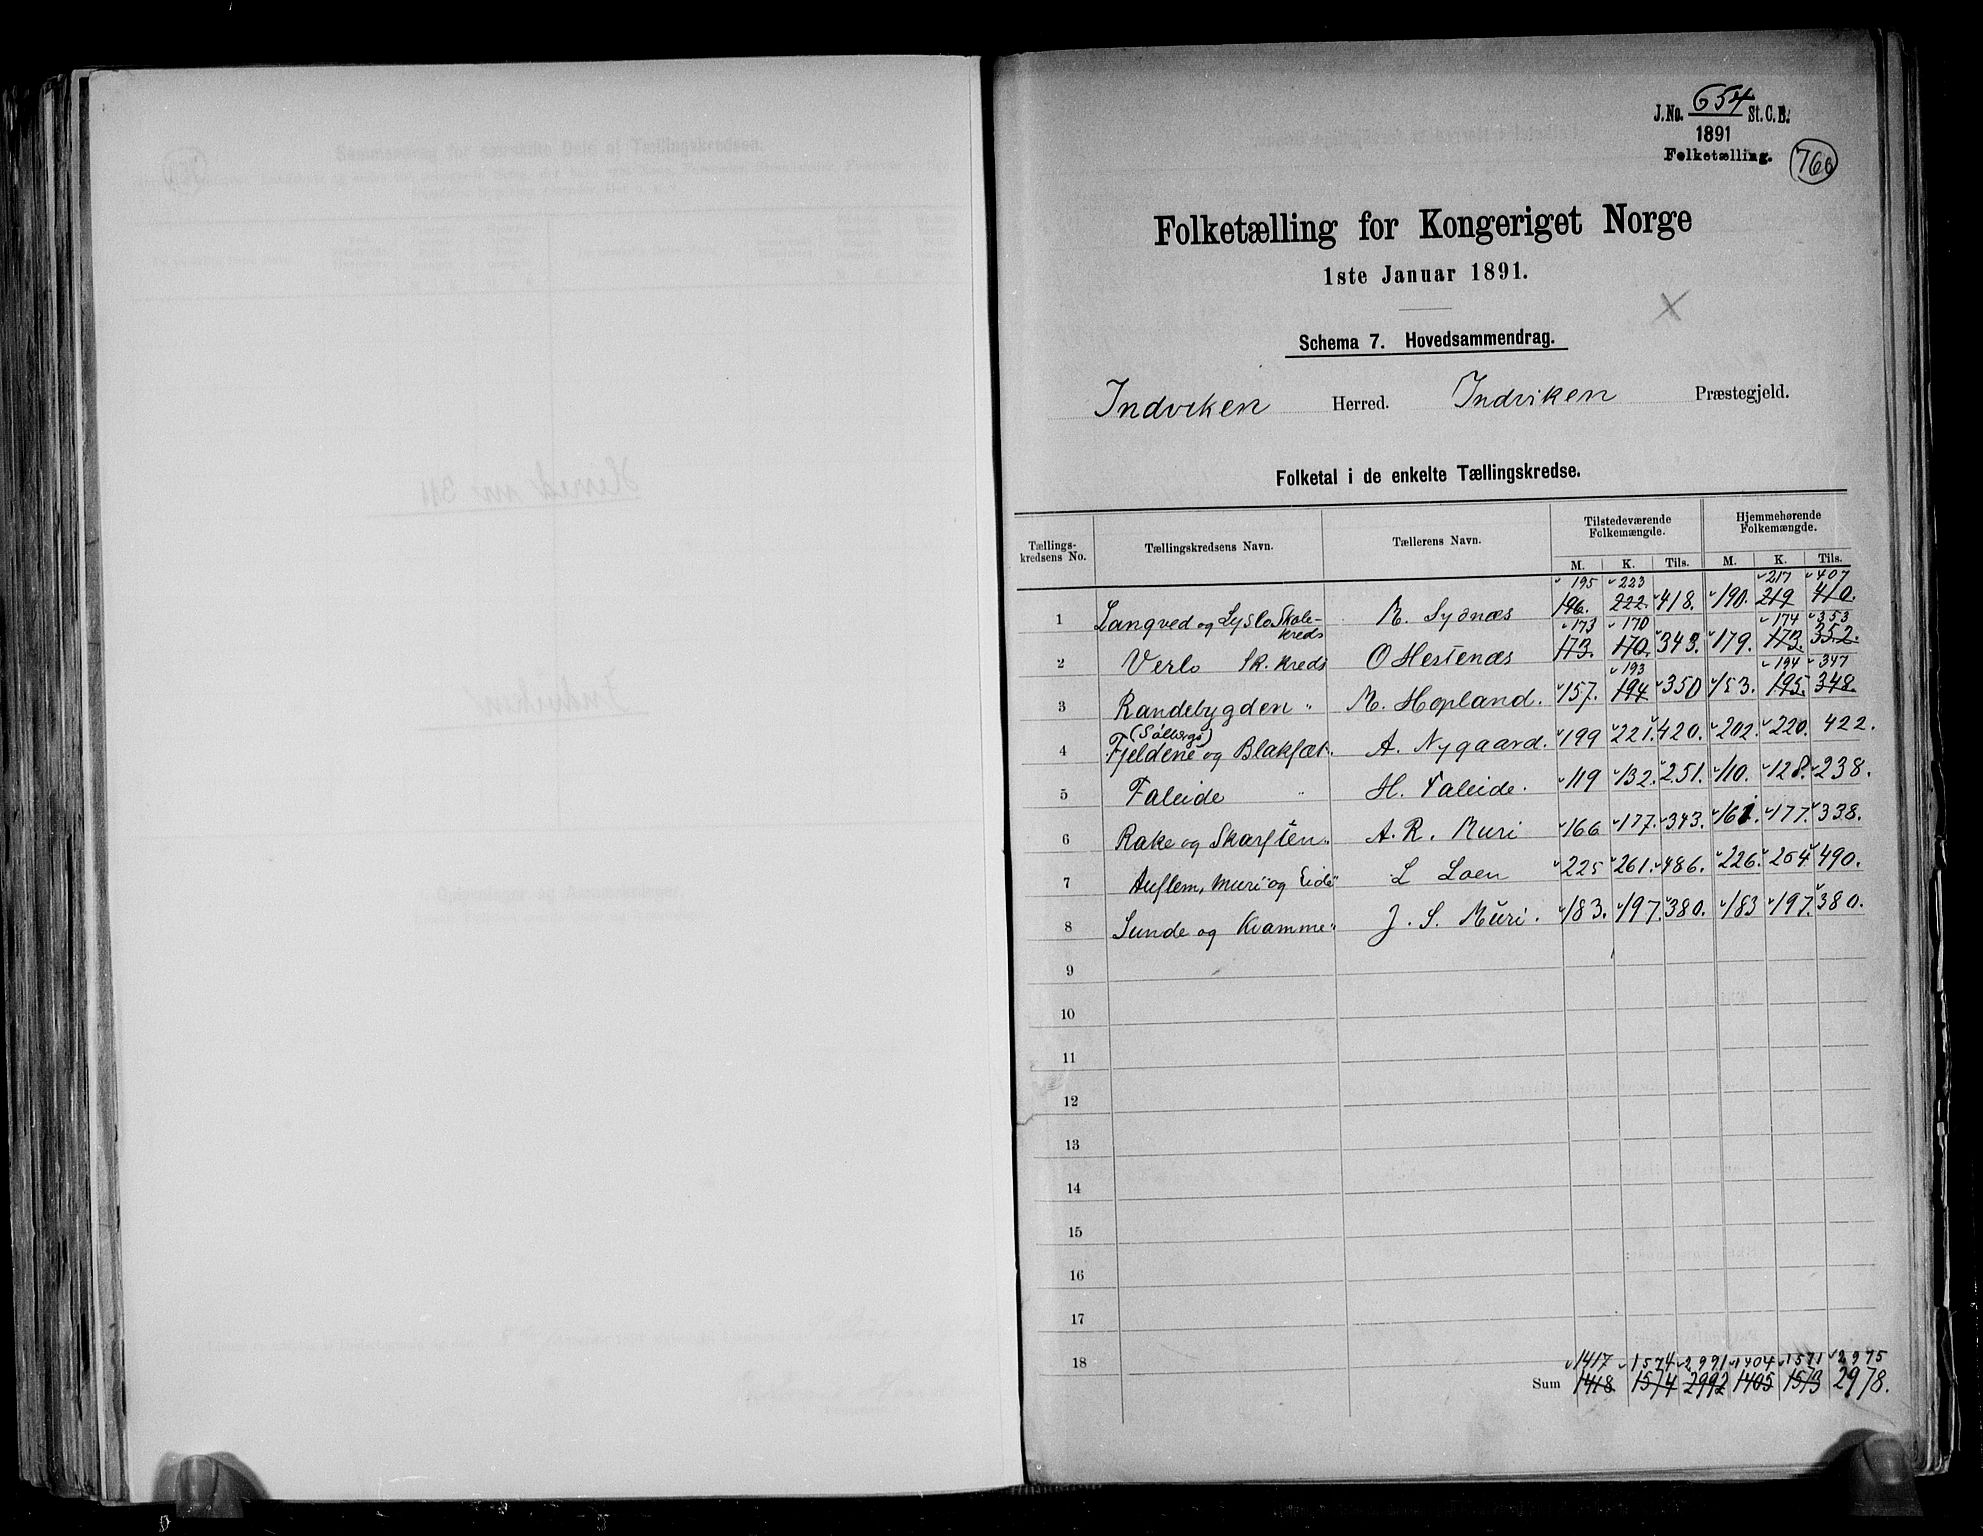 J. No. 654 St. C. B.
1891
Folketælling.
760
Folketælling for Kongeriget Norge
1ste Januar 1891.
Schema 7. Hovedsammendrag.
Indviken Herred. Indviken Præstegjeld.
Folketal i de enkelte Tællingskredse.
Tællings-kredsens No. Tællingskredsens Navn. Tællerens Navn. Tilstedeværende Folkemængde. Hjemmehørende Folkemængde.
M. K. Tils. M. K. Tils.
195 223 217 407
1 Langved og Lyslo Skole-kreds R. Sydnæs 196. 222. 418. 190. 219 410.
173 170 174 353
2 Verlo Sk. kreds O Hestenæs 173. 170. 343. 179. 173. 352.
193 194 347
3 Randebygden " M. Hopland. 157. 194 350 153. 195. 348.
(Sølbergs)
4 Fjeldene og Blakset " A. Nygaard. 199 221. 420. 202. 220. 422.
5 Faleide " H. Faleide. 119 132. 251. 110. 128. 238.
6 Rake og Skarsten " A. R. Muri 166 177. 343. 161. 177. 338.
7 Auflem, Muri og Eide " L Loen 225 261. 486. 226. 264. 490.
8 Sunde og Kvamme " J. S. Muri. 183. 197. 380. 183 197. 380.
9
10
11
12
13
14
15
16
17
18
1417 1574 2991 1404 1571 2975
Sum 1418 1574 2992 1405 1573 2978.